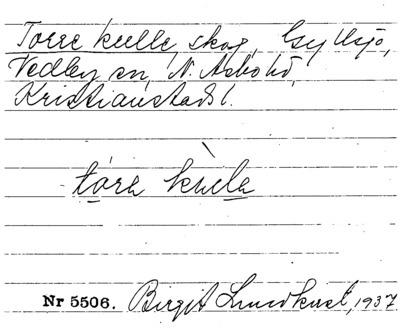 Torre kulle, skog, Gyllsjö,
Vedby sn, N. Åsbo hd,
Kristianstads l.
tóra kùlla
Nr 5506. Birgit Lundkvist, 1937